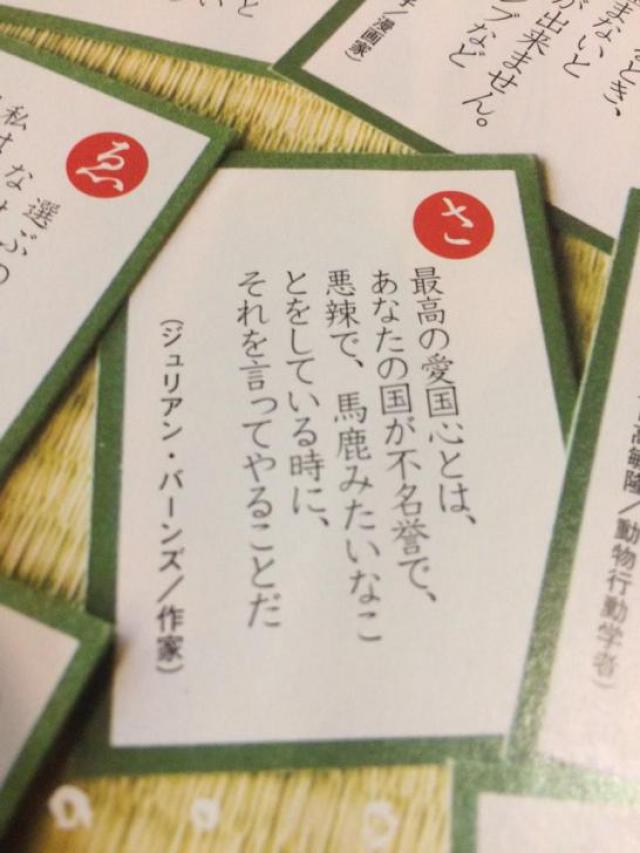 さ
最高の愛国心とは、
あなたの国が不名誉で、
悪辣で、馬鹿みたいなこ
とをしている時に、
それを言ってやることだ
(ジュリアン・バーンズ/作家)
ゑ
選ぶの
まないと
が出来ません。
ブなど
/漫画家)
高敏隆/動物行動学者)